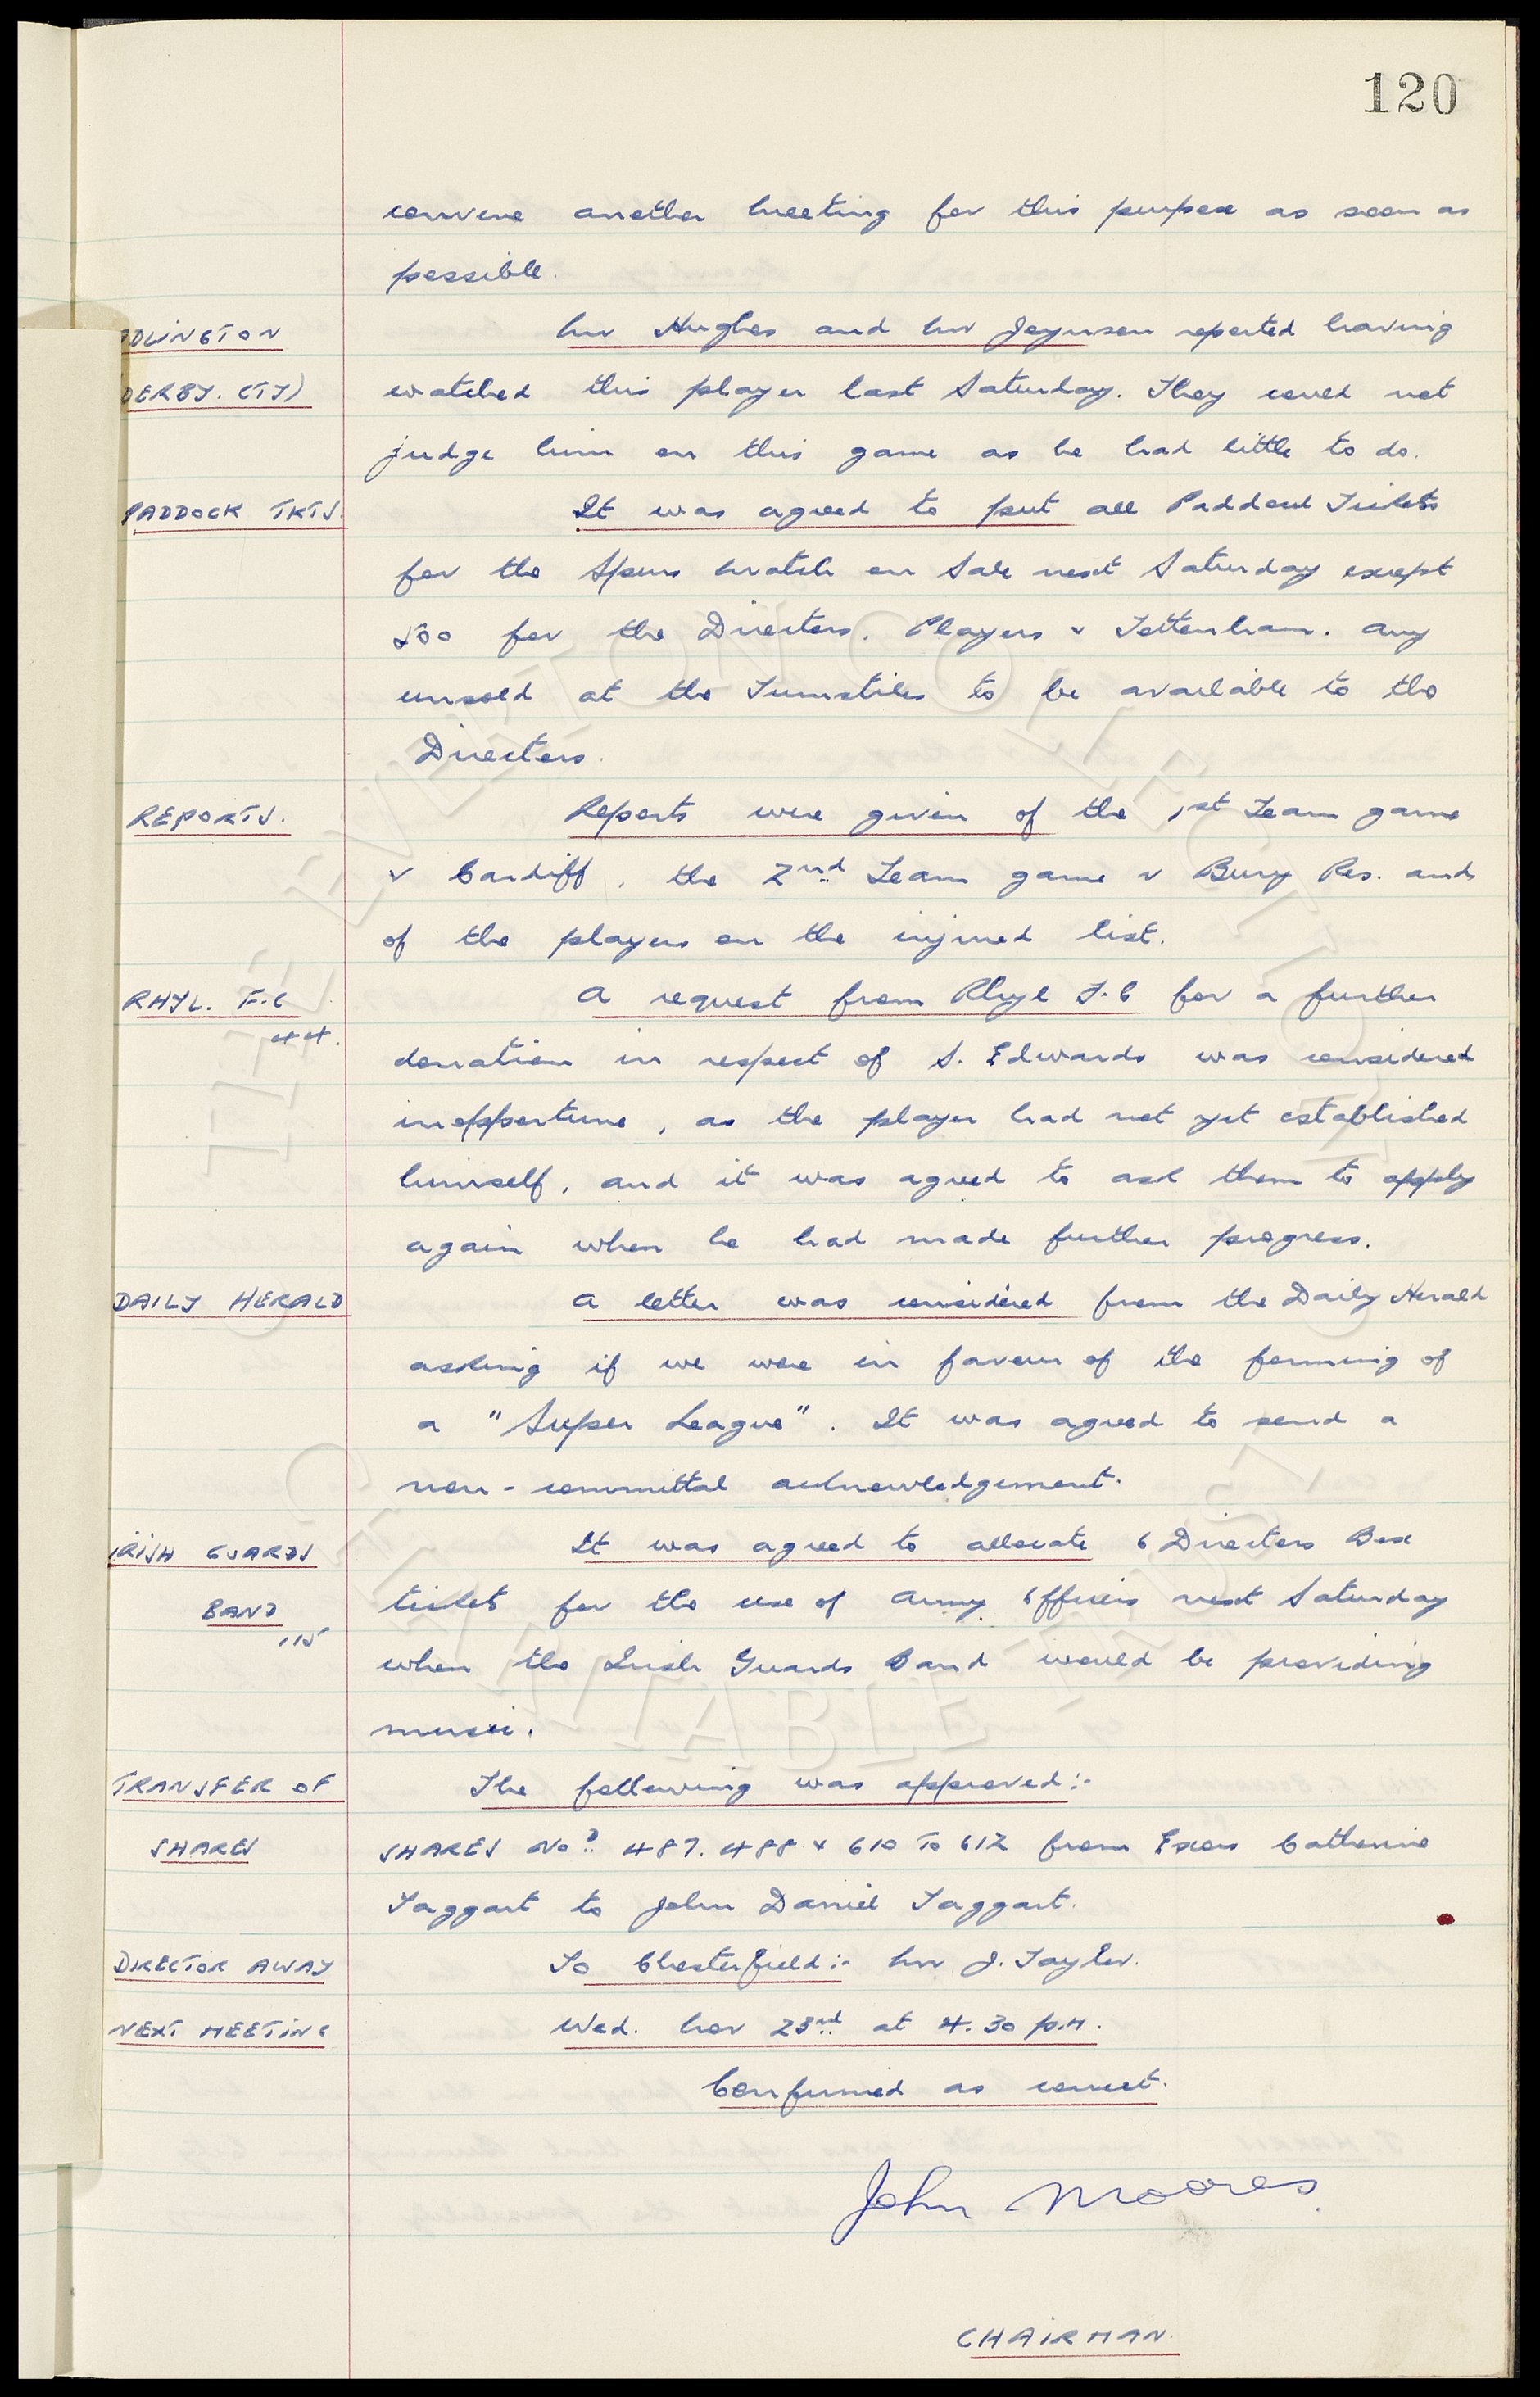 120
convene another meeting for this purpose as soon as
possible.
DLINGTON
Mr Hughes and Mr Joynson reported having
DERBY. CTY)
watched this player last Saturday. They could not
judge him on this game as he had little to do.
PADDOCK TKTS.
It was agreed to put all Paddock Tickets
for the Spurs match on Sale next Saturday except
for the Directors, Players & Tottenham. Any
unsold at the Turnstiles to be available to the
Directors.
REPORTS.
Reports were given of the 1st Team game
v Cardiff, the 2nd Team game v Bury Res. and
of the players on the injured list.
RHYL. F.C
A request from Rhyl F.C for a further
44.
donation in respect of S. Edwards was considered
inopportune, as the player had not yet established
himself, and it was agreed to ask them to apply
again when he had made further progress.
DAILY HERALD
A letter was considered from the Daily Herald
asking if we were in favour of the forming of
a "Super League". It was agreed to send a
non-committal acknowledgement.
IRISH GUARDS
It was agreed to allocate 6 Directors Box
BAND
tickets for the use of Army Officers next Saturday
115
when the Irish Guards Band would be providing
music.
TRANSFER OF
The following was approved:-
SHARES
SHARES Nos 487. 488 & 610 TO 612 from Exors Catherine
Taggart to John Daniel Taggart.
DIRECTOR AWAY
To Chesterfield:- Mr J. Taylor.
NEXT MEETING
Wed. Nov 23rd at 4.30 p.m.
Confirmed as correct.
John Moores
CHAIRMAN.
THE EVERTON COLLECTION
CHARITABLE TRUST